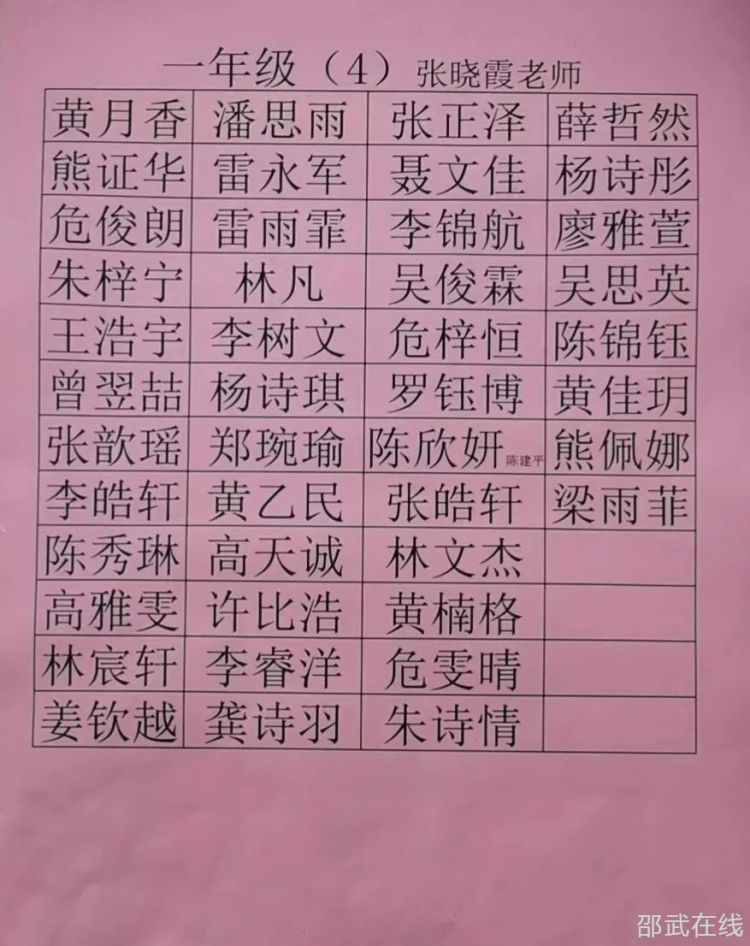 一年级（4）张晓霞老师
黄月香 潘思雨 张正泽 薛哲然
熊证华 雷永军 聂文佳 杨诗彤
危俊朗 雷雨霏 李锦航 廖雅萱
朱梓宁 林凡 吴俊霖 吴思英
王浩宇 李树文 危梓恒 陈锦钰
曾翌喆 杨诗琪 罗钰博 黄佳玥
张歆瑶 郑琬瑜 陈欣妍 陈建平 熊佩娜
李皓轩 黄乙民 张皓轩 梁雨菲
陈秀琳 高天诚 林文杰
高雅雯 许比浩 黄楠格
林宸轩 李睿洋 危雯晴
姜钦越 龚诗羽 朱诗情
邵武在线